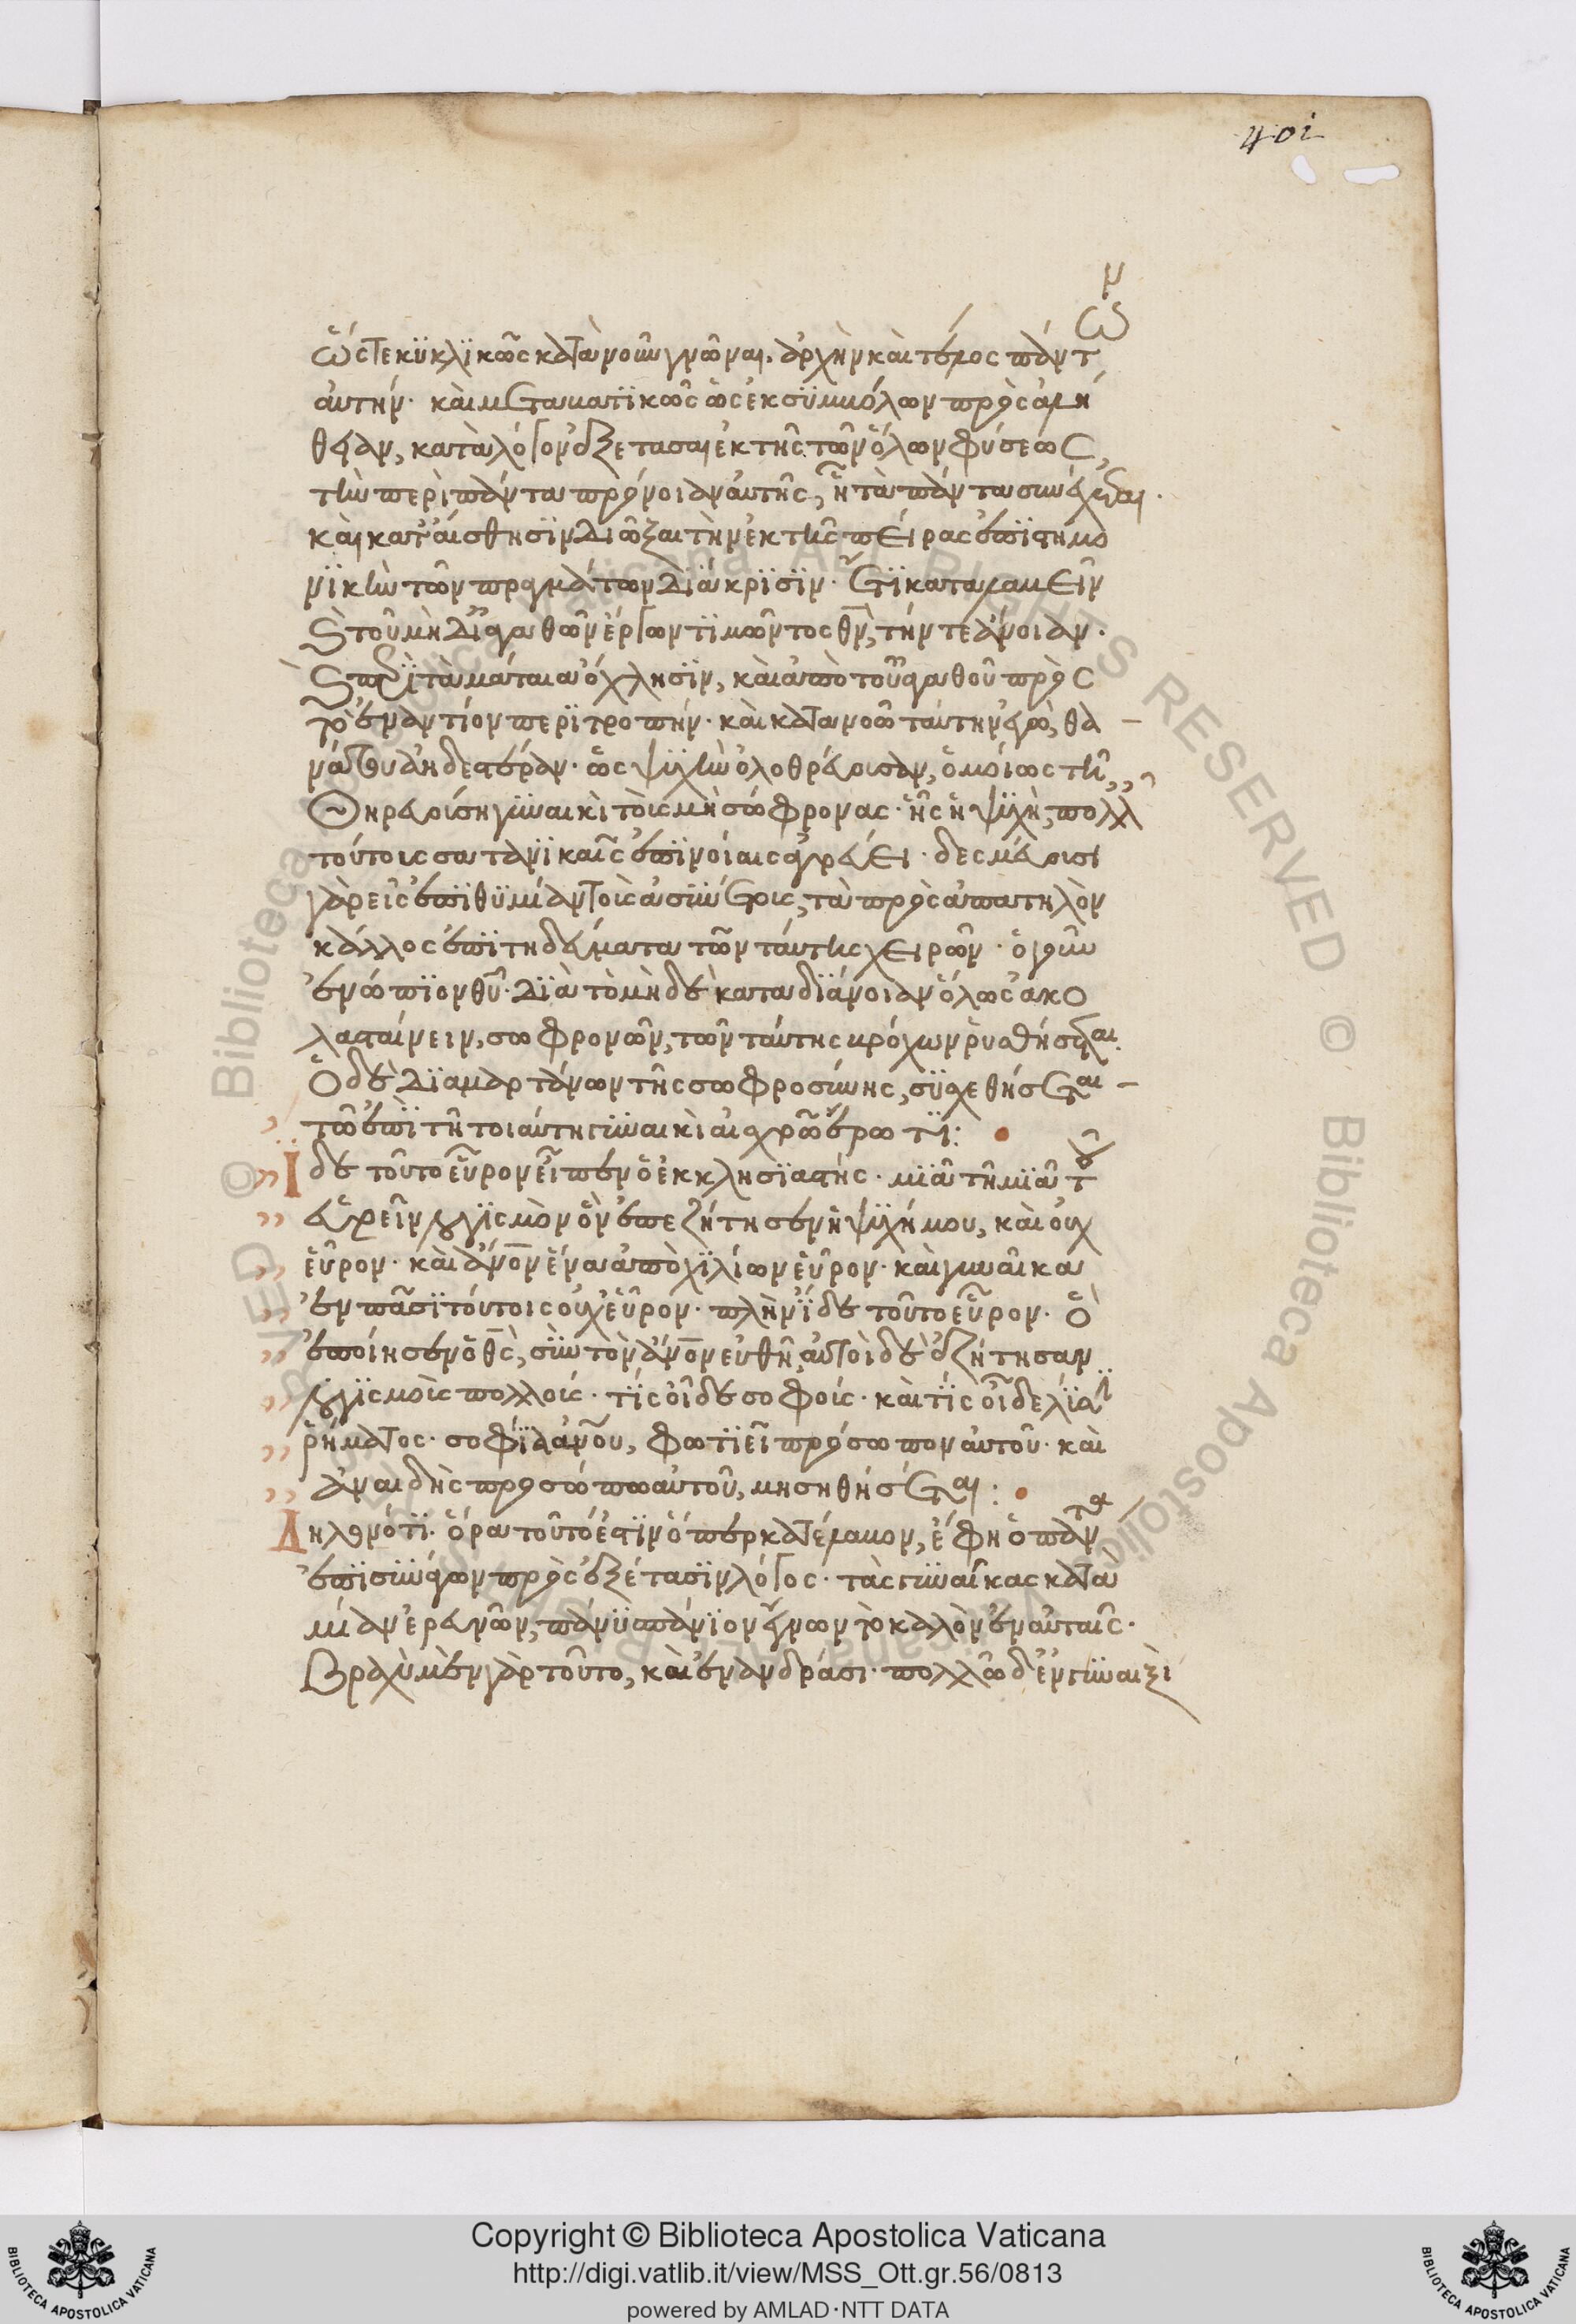 401
ὥστε κυκλικῶς κατὰ νοῦν γνῶναι. ἀρχὴν καὶ τέλος πάντων
αὐτήν· καὶ μεταβατικῶς ὡς ἐκ συμβόλων πρὸς ἀλή
θειαν, κατὰ λόγον ἐξετάσαι ἐκ τῆς τῶν ὅλων φύσεως,
τὴν περὶ πάντα πρόνοιαν αὐτῆς, ἧ τὰ πάντα συνέχεται.
καὶ κατ' αἴσθησιν διῶξαι τὴν ἐκ τῆς πείρας ἐπιστημο
νικὴν τῶν πραγμάτων διάκρισιν.
τοῦ μὴ δι' ἀγαθῶν ἔργων τιμῶντος θν, τήν τε ἄνοιαν.
μάταια ὄχλησιν, καὶ ἀπὸ τοῦ ἀγαθοῦ πρὸς
τὸ ἐναντίον περιτροπήν· καὶ κατανοῶ ταύτην ἐγὼ, θα
νάτου ἀηδεστέραν· ὡς ψυχὴν ὀλοθρεύουσαν, ὁμοίως τῆ
θηρευούση γυναικὶ τοὺς μὴ σώφρονας· ἧς ἡ ψυχὴ, πολλ
τούτοις σατανικαῖς ἐπινοίαις ἀγρεύει· δεσμεύουσι
γὰρ εἰς ἐπιθυμίαν τοὺς ἀσυνέτους, τὰ πρὸς ἀπατηλὸν
κάλλος ἐπιτηδεύματα τῶν ταύτης χειρῶν· ὁ γοῦν
ἐνώπιον θυ· διὰ τὸ μὴ δὲ κατὰ διάνοιαν ὅλως ἀκο
λασταίνειν, σωφρονῶν, τῶν ταύτης βρόχων ῥυσθήσεται.
Ὁ δὲ διαμαρτάνων τῆς σωφροσύνης, συσχεθήσεται
τῶ ἐπὶ τῆ τοιαύτη γυναικὶ αἰσχρῶ ἔρωτι:
Ἴδε τοῦτο εὗρον εἶπεν ὁ ἐκκλησιαστής· μιᾶ τῆ μιᾶ τοῦ
εὑρεῖν λογισμὸν ὃν ἐπεζήτησεν ἡ ψυχή μου, καὶ οὐχ
εὗρον· καὶ ἄνον ἕνα ἀπὸ χιλίων εὗρον· καὶ γυναῖκα
ἐν πᾶσι τούτοις οὐχ εὗρον· πλὴν ἴδε τοῦτο εὗρον· ὃ
ἐποίησεν ὁ θς, σὺν τὸν ἄνον εὐθῆ, αὐτοὶ δὲ ἐζήτησαν
λογισμοὺς πολλούς· τίς οἶδε σοφούς· καὶ τίς οἶδε λύσιν
ῥήματος· σοφία ἀνου, φωτιεῖ πρόσωπον αὐτοῦ· καὶ
ἀναιδὴς προσώπω αὐτοῦ, μισηθήσεται:
Δηλονότι· ὅρα τοῦτό ἐστιν ὅπερ κατέλαβον, ἔφη ὁ πάντα
ἐπισυνάγων πρὸς ἐξέτασιν λόγος· τὰς γυναῖκας κατὰ
μίαν ἐρευνῶν, πάνυ σπάνιον τὸ καλὸν ἐν αὐταῖς·
βραχὺ μὲν γὰρ τοῦτο, καὶ ἐν ἀνδράσι· πολλῶ δ' ἐν γυναιξὶ
Copyright © Biblioteca Apostolica Vaticana
http://digi.vatlib.it/view/MSS_Ott.gr.56/0813
powered by AMLAD·NTT DATA